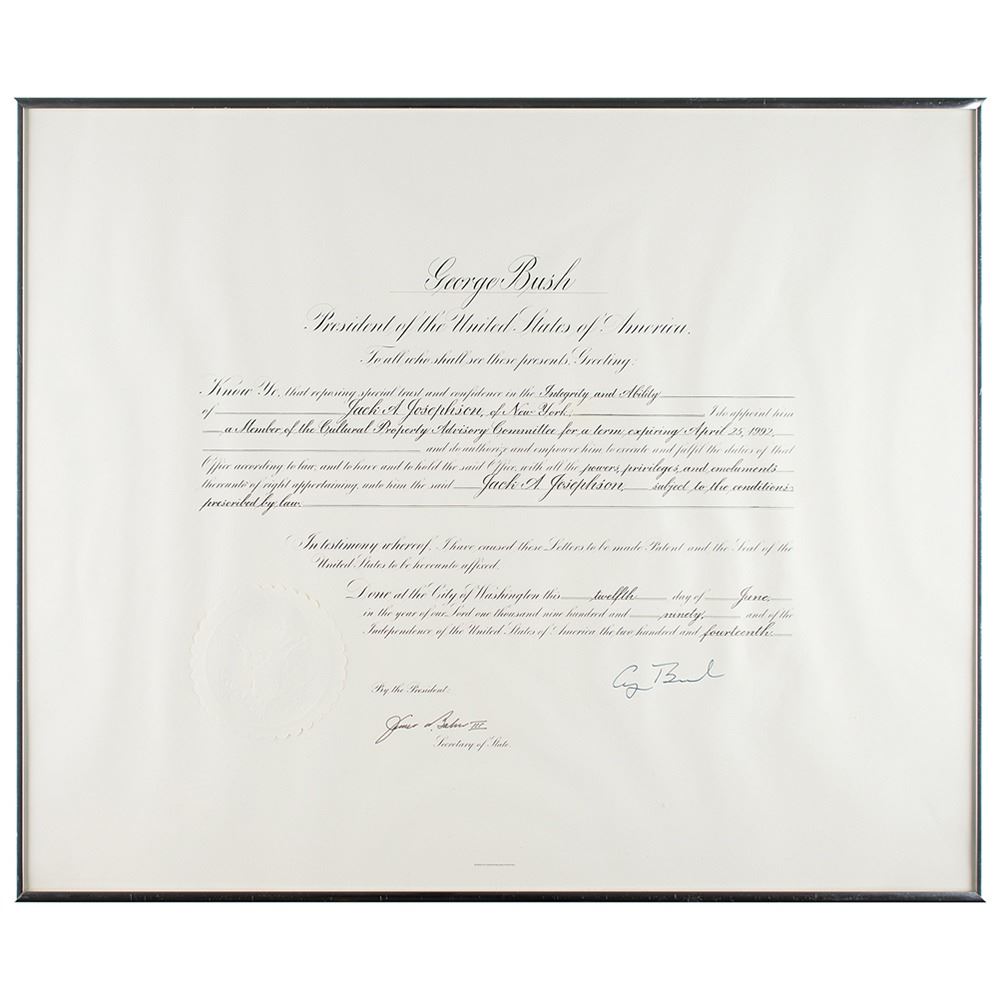 George Bush
President of the United States of America.
To all who shall see these presents, Greeting:
Know Ye, that reposing special trust and confidence in the Integrity and Ability
of Jack A. Josephson, of New York, I do appoint him
a Member of the Cultural Property Advisory Committee for a term expiring April 25, 1992,
and do authorize and empower him to execute and fulfil the duties of that
Office according to law, and to have and to hold the said Office, with all the powers, privileges, and emoluments
thereunto of right appertaining, unto him the said Jack A. Josephson, subject to the conditions
prescribed by law.
In testimony whereof, I have caused these Letters to be made Patent and the Seal of the
United States to be hereunto affixed.
Done at the City of Washington this twelfth day of June,
in the year of our Lord one thousand nine hundred and ninety, and of the
Independence of the United States of America the two hundred and fourteenth.
G Bush
By the President:
James A. Baker III
Secretary of State.